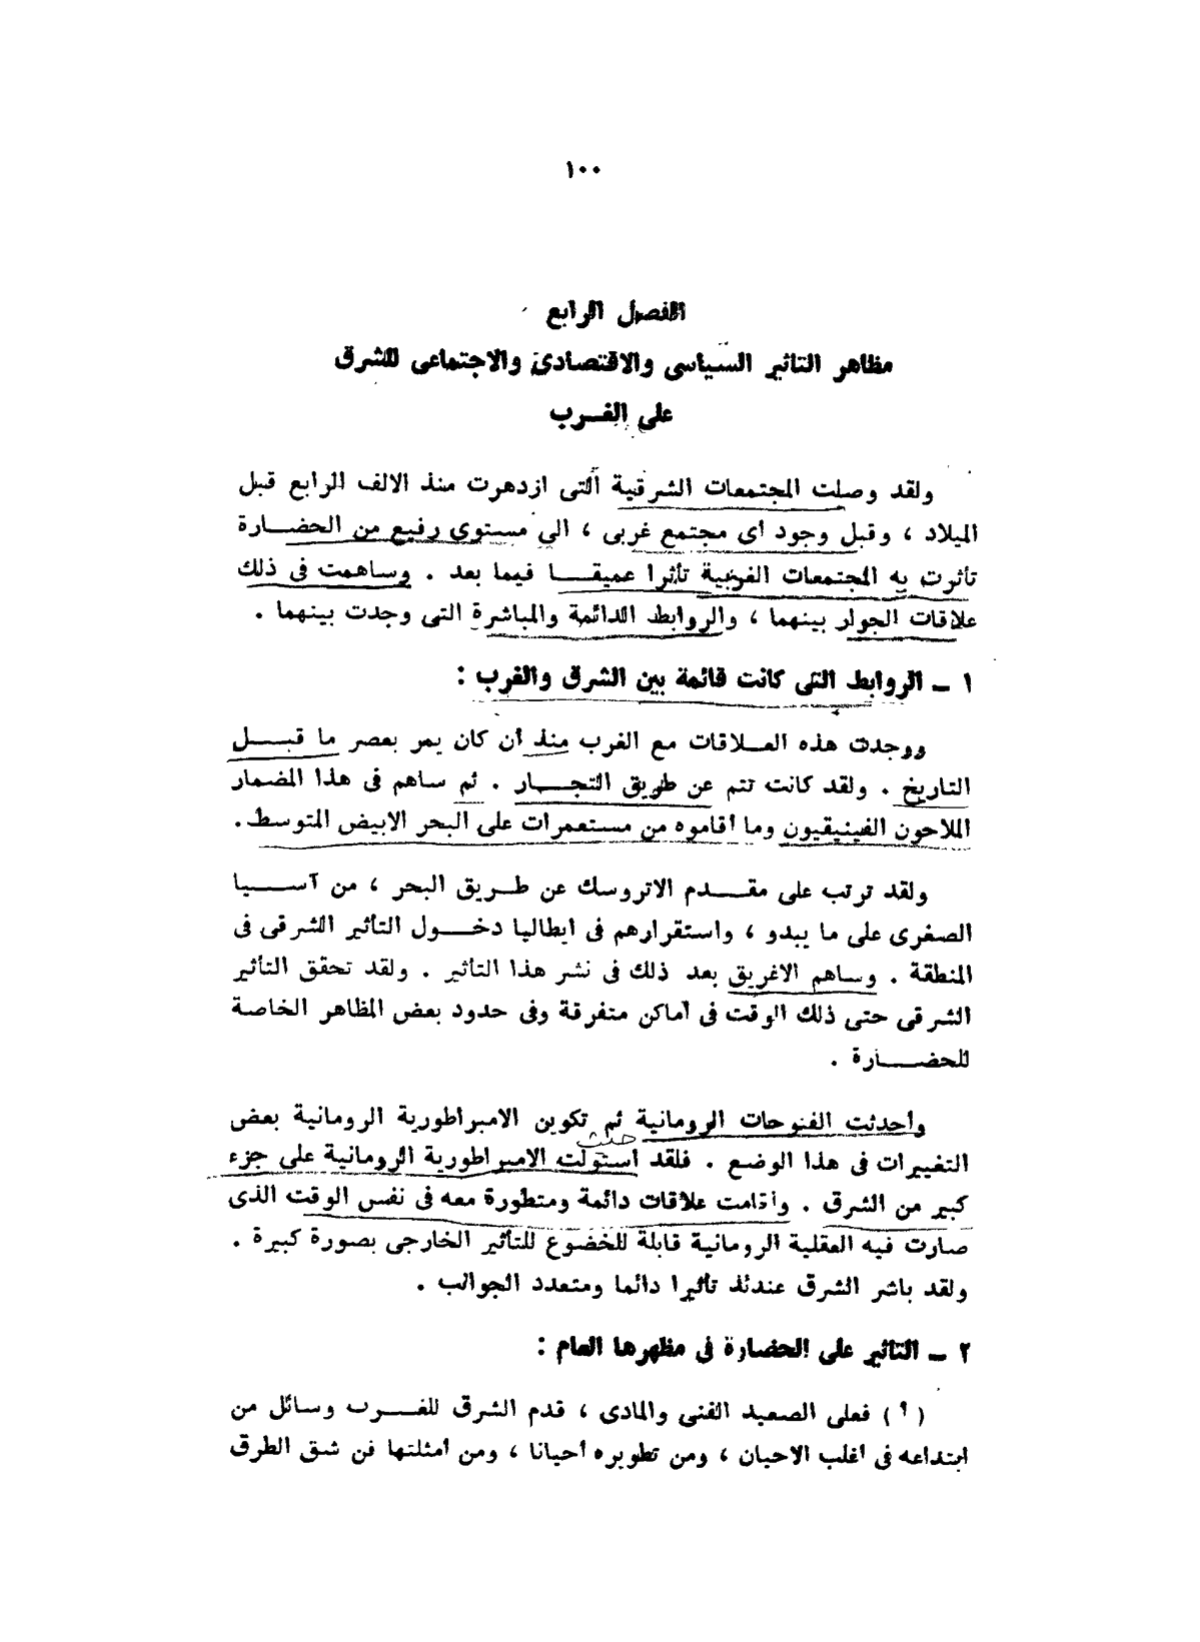 ١٠٠
الفصل الرابع
مظاهر التاثير السياسى والاقتصادى والاجتماعى للشرق
على الغرب
ولقد وصلت المجتمعات الشرقية التى ازدهرت منذ الالف الرابع قبل
الميلاد ، وقبل وجود أى مجتمع غربى ، الى مستوى رفيع من الحضارة
تأثرت به المجتمعات الغربية تأثرا عميقا فيما بعد . وساهمت فى ذلك
علاقات الجوار بينهما ، والروابط الدائمة والمباشرة التى وجدت بينهما .
١ - الروابط التى كانت قائمة بين الشرق والغرب :
ووجدت هذه العلاقات مع الغرب منذ أن كان يمر بعصر ما قبل
التاريخ . ولقد كانت تتم عن طريق التجار . ثم ساهم فى هذا المضمار
الملاحون الفينيقيون وما أقاموه من مستعمرات على البحر الابيض المتوسط .
ولقد ترتب على مقدم الاتروسك عن طريق البحر ، من آسيا
الصغرى على ما يبدو ، واستقرارهم فى ايطاليا دخول التأثير الشرقى فى
المنطقة . وساهم الاغريق بعد ذلك فى نشر هذا التأثير . ولقد تحقق التأثير
الشرقى حتى ذلك الوقت فى أماكن متفرقة وفى حدود بعض المظاهر الخاصة
للحضارة .
وأحدثت الفتوحات الرومانية ثم تكوين الامبراطورية الرومانية بعض
التغييرات فى هذا الوضع . فلقد استولت الامبراطورية الرومانية على جزء
كبير من الشرق . وأقامت علاقات دائمة ومتطورة معه فى نفس الوقت الذى
صارت فيه العقلية الرومانية قابلة للخضوع للتأثير الخارجى بصورة كبيرة .
ولقد باشر الشرق عندئذ تأثيرا دائما ومتعدد الجوانب .
٢ - التاثير على الحضارة فى مظهرها العام :
( أ ) فعلى الصعيد الفنى والمادى ، قدم الشرق للغرب وسائل من
ابتداعه فى أغلب الاحيان ، ومن تطويره أحيانا ، ومن أمثلتها فن شق الطرق